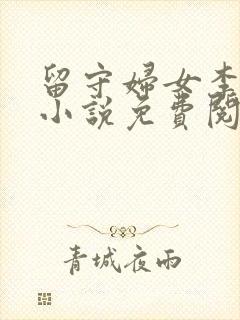 留守婦女李
小說免費閱
青城夜雨